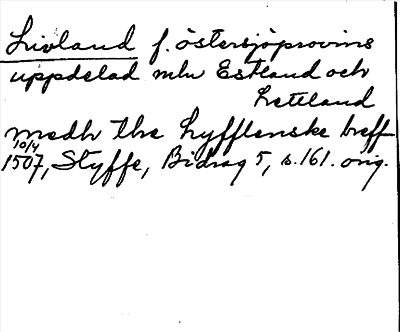 Livland f. östersjöprovins
uppdelad mln Estland och
Lettland
medh the Lyfflenske breff
10/4
1507, Styffe, Bidrag 5, s.161. orig.